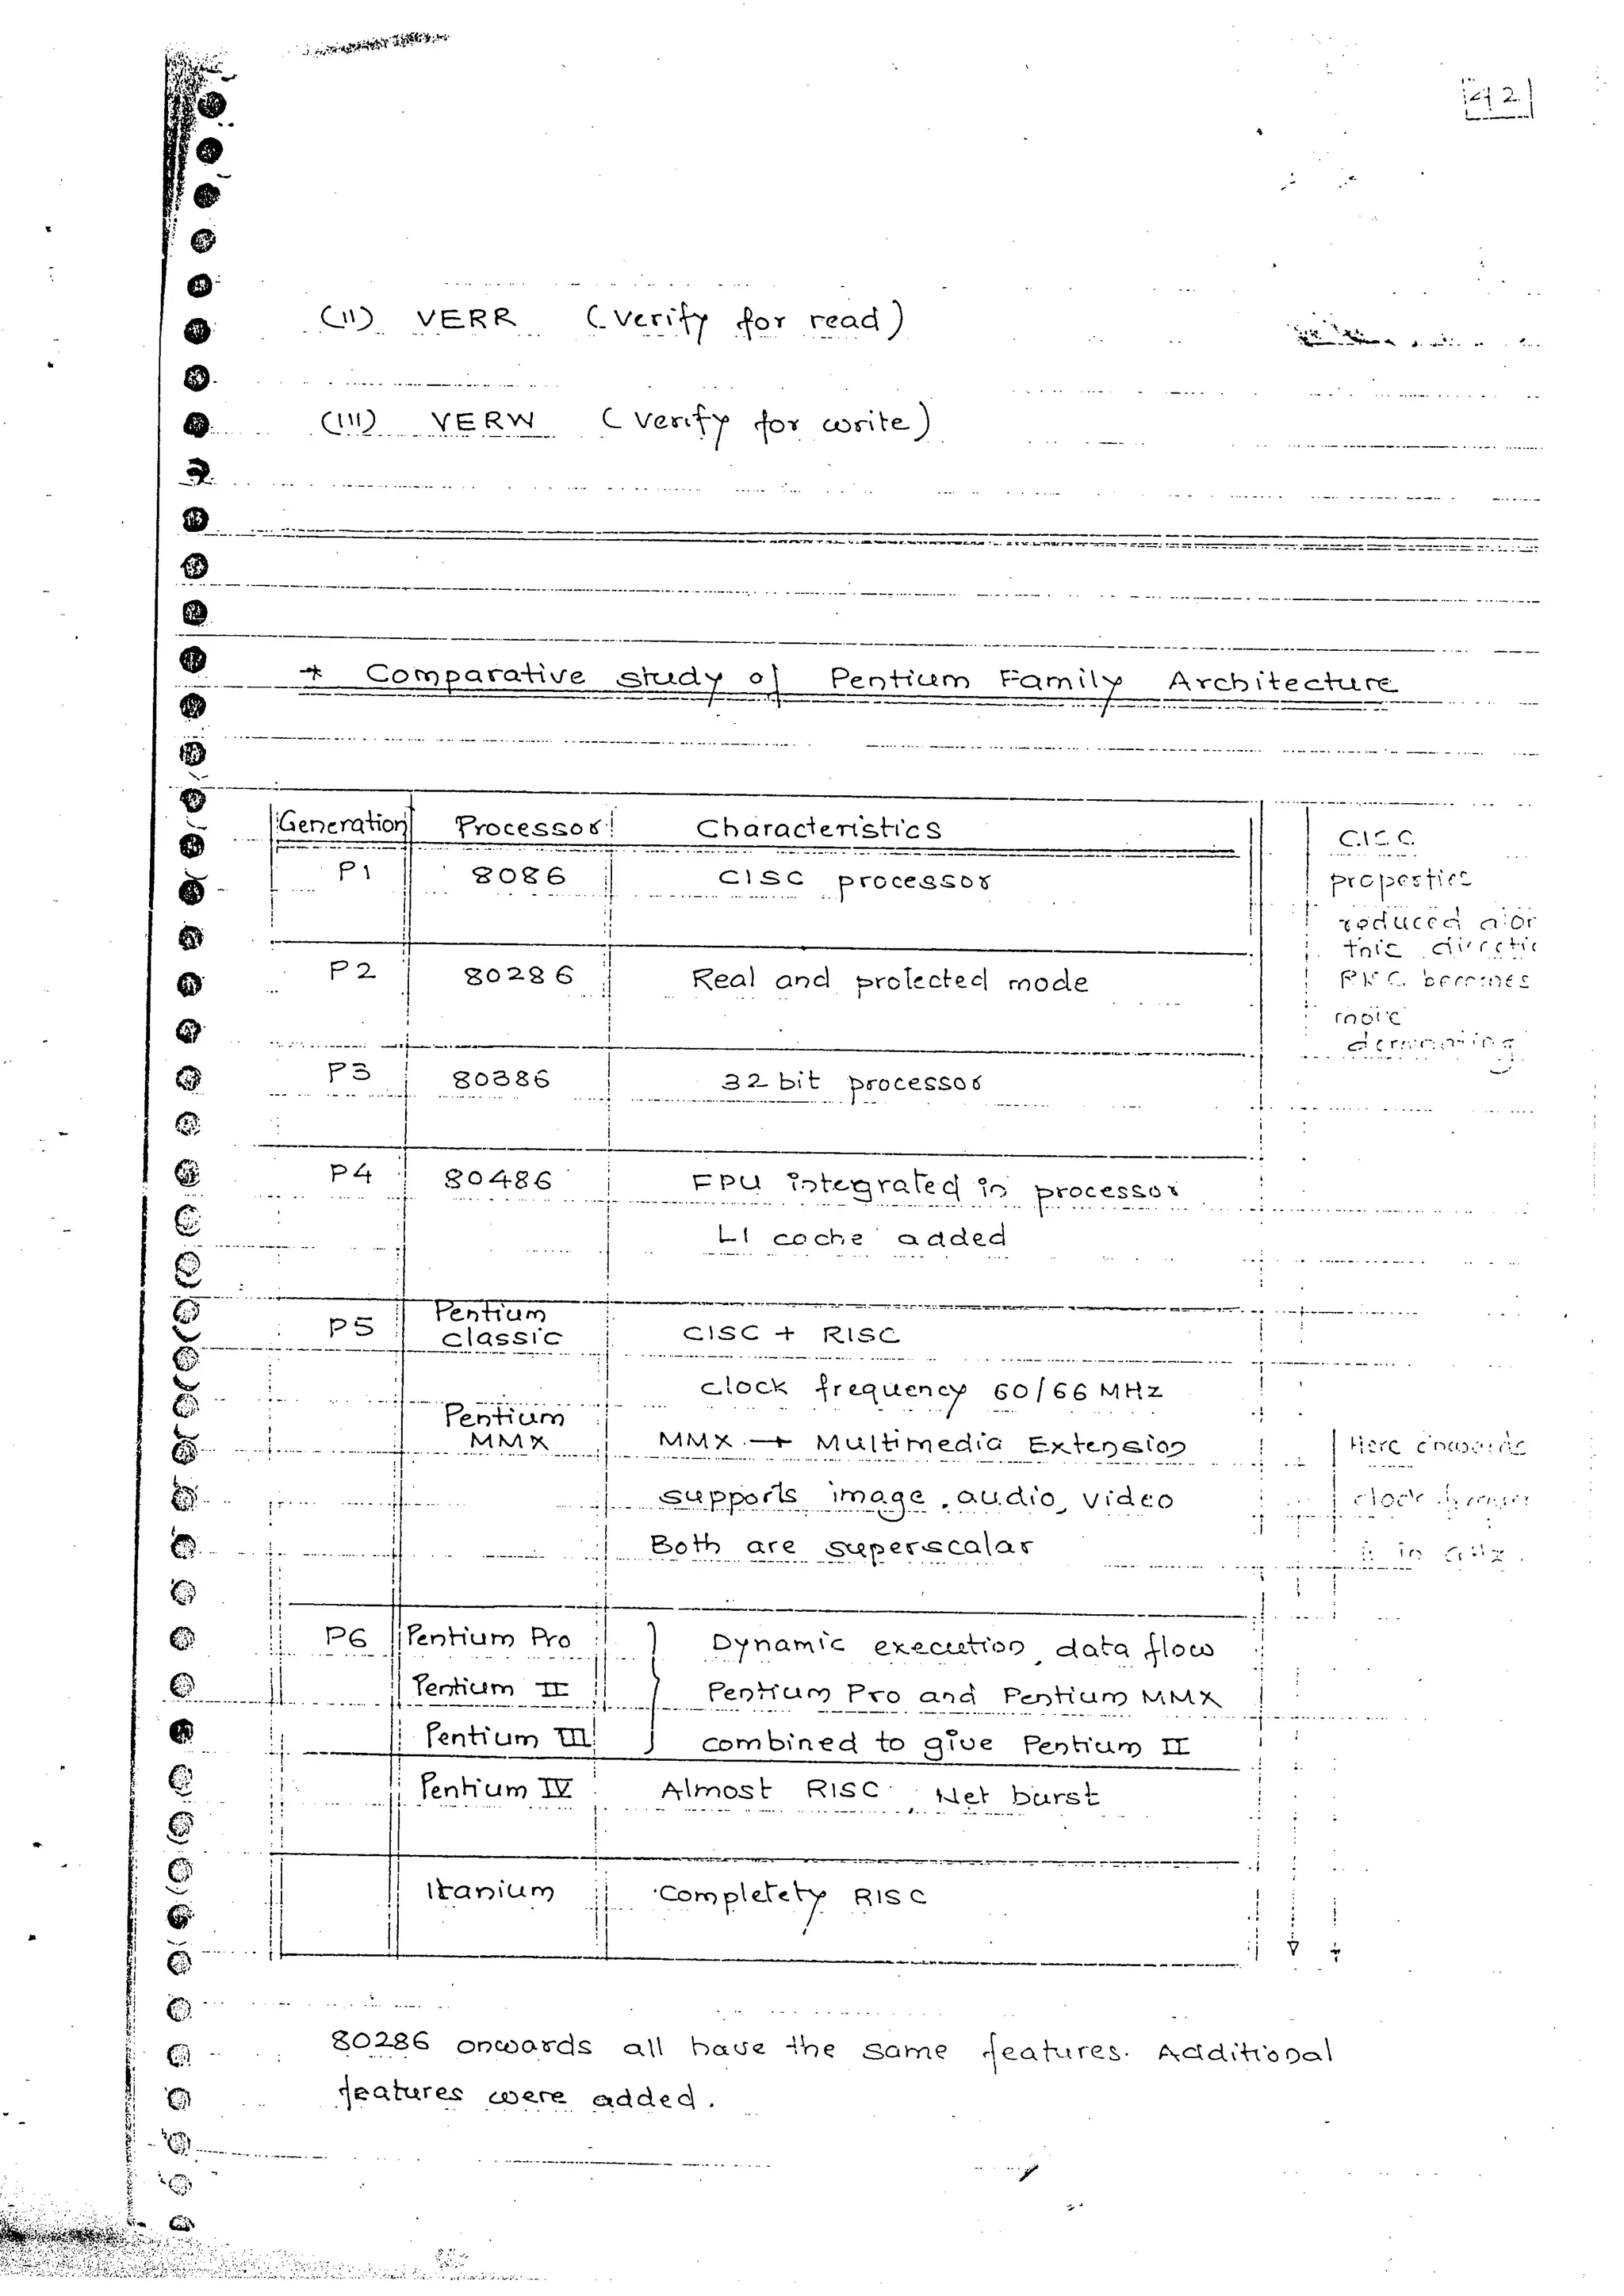 42
(II) VERR (Verify for read)
(III) VERW (Verify for write)
* Comparative study of Pentium Family Architecture
Generation Processor Characteristics
P1 8086 CISC processor
P2 80286 Real and protected mode
P3 80386 32 bit processor
P4 80486 FPU integrated in processor
L1 cache added
P5 Pentium classic CISC + RISC
clock frequency 60/66 MHz
Pentium MMX MMX → Multimedia Extension
supports image, audio, video
Both are superscalar
P6 Pentium Pro Dynamic execution, data flow
Pentium II Pentium Pro and Pentium MMX
Pentium III combined to give Pentium II
Pentium IV Almost RISC Net burst
Itanium Completely RISC
CISC
properties
reduced
becomes
more
Here onwards
clock
is in GHz.
80286 onwards all have the same features. Additional
features were added.